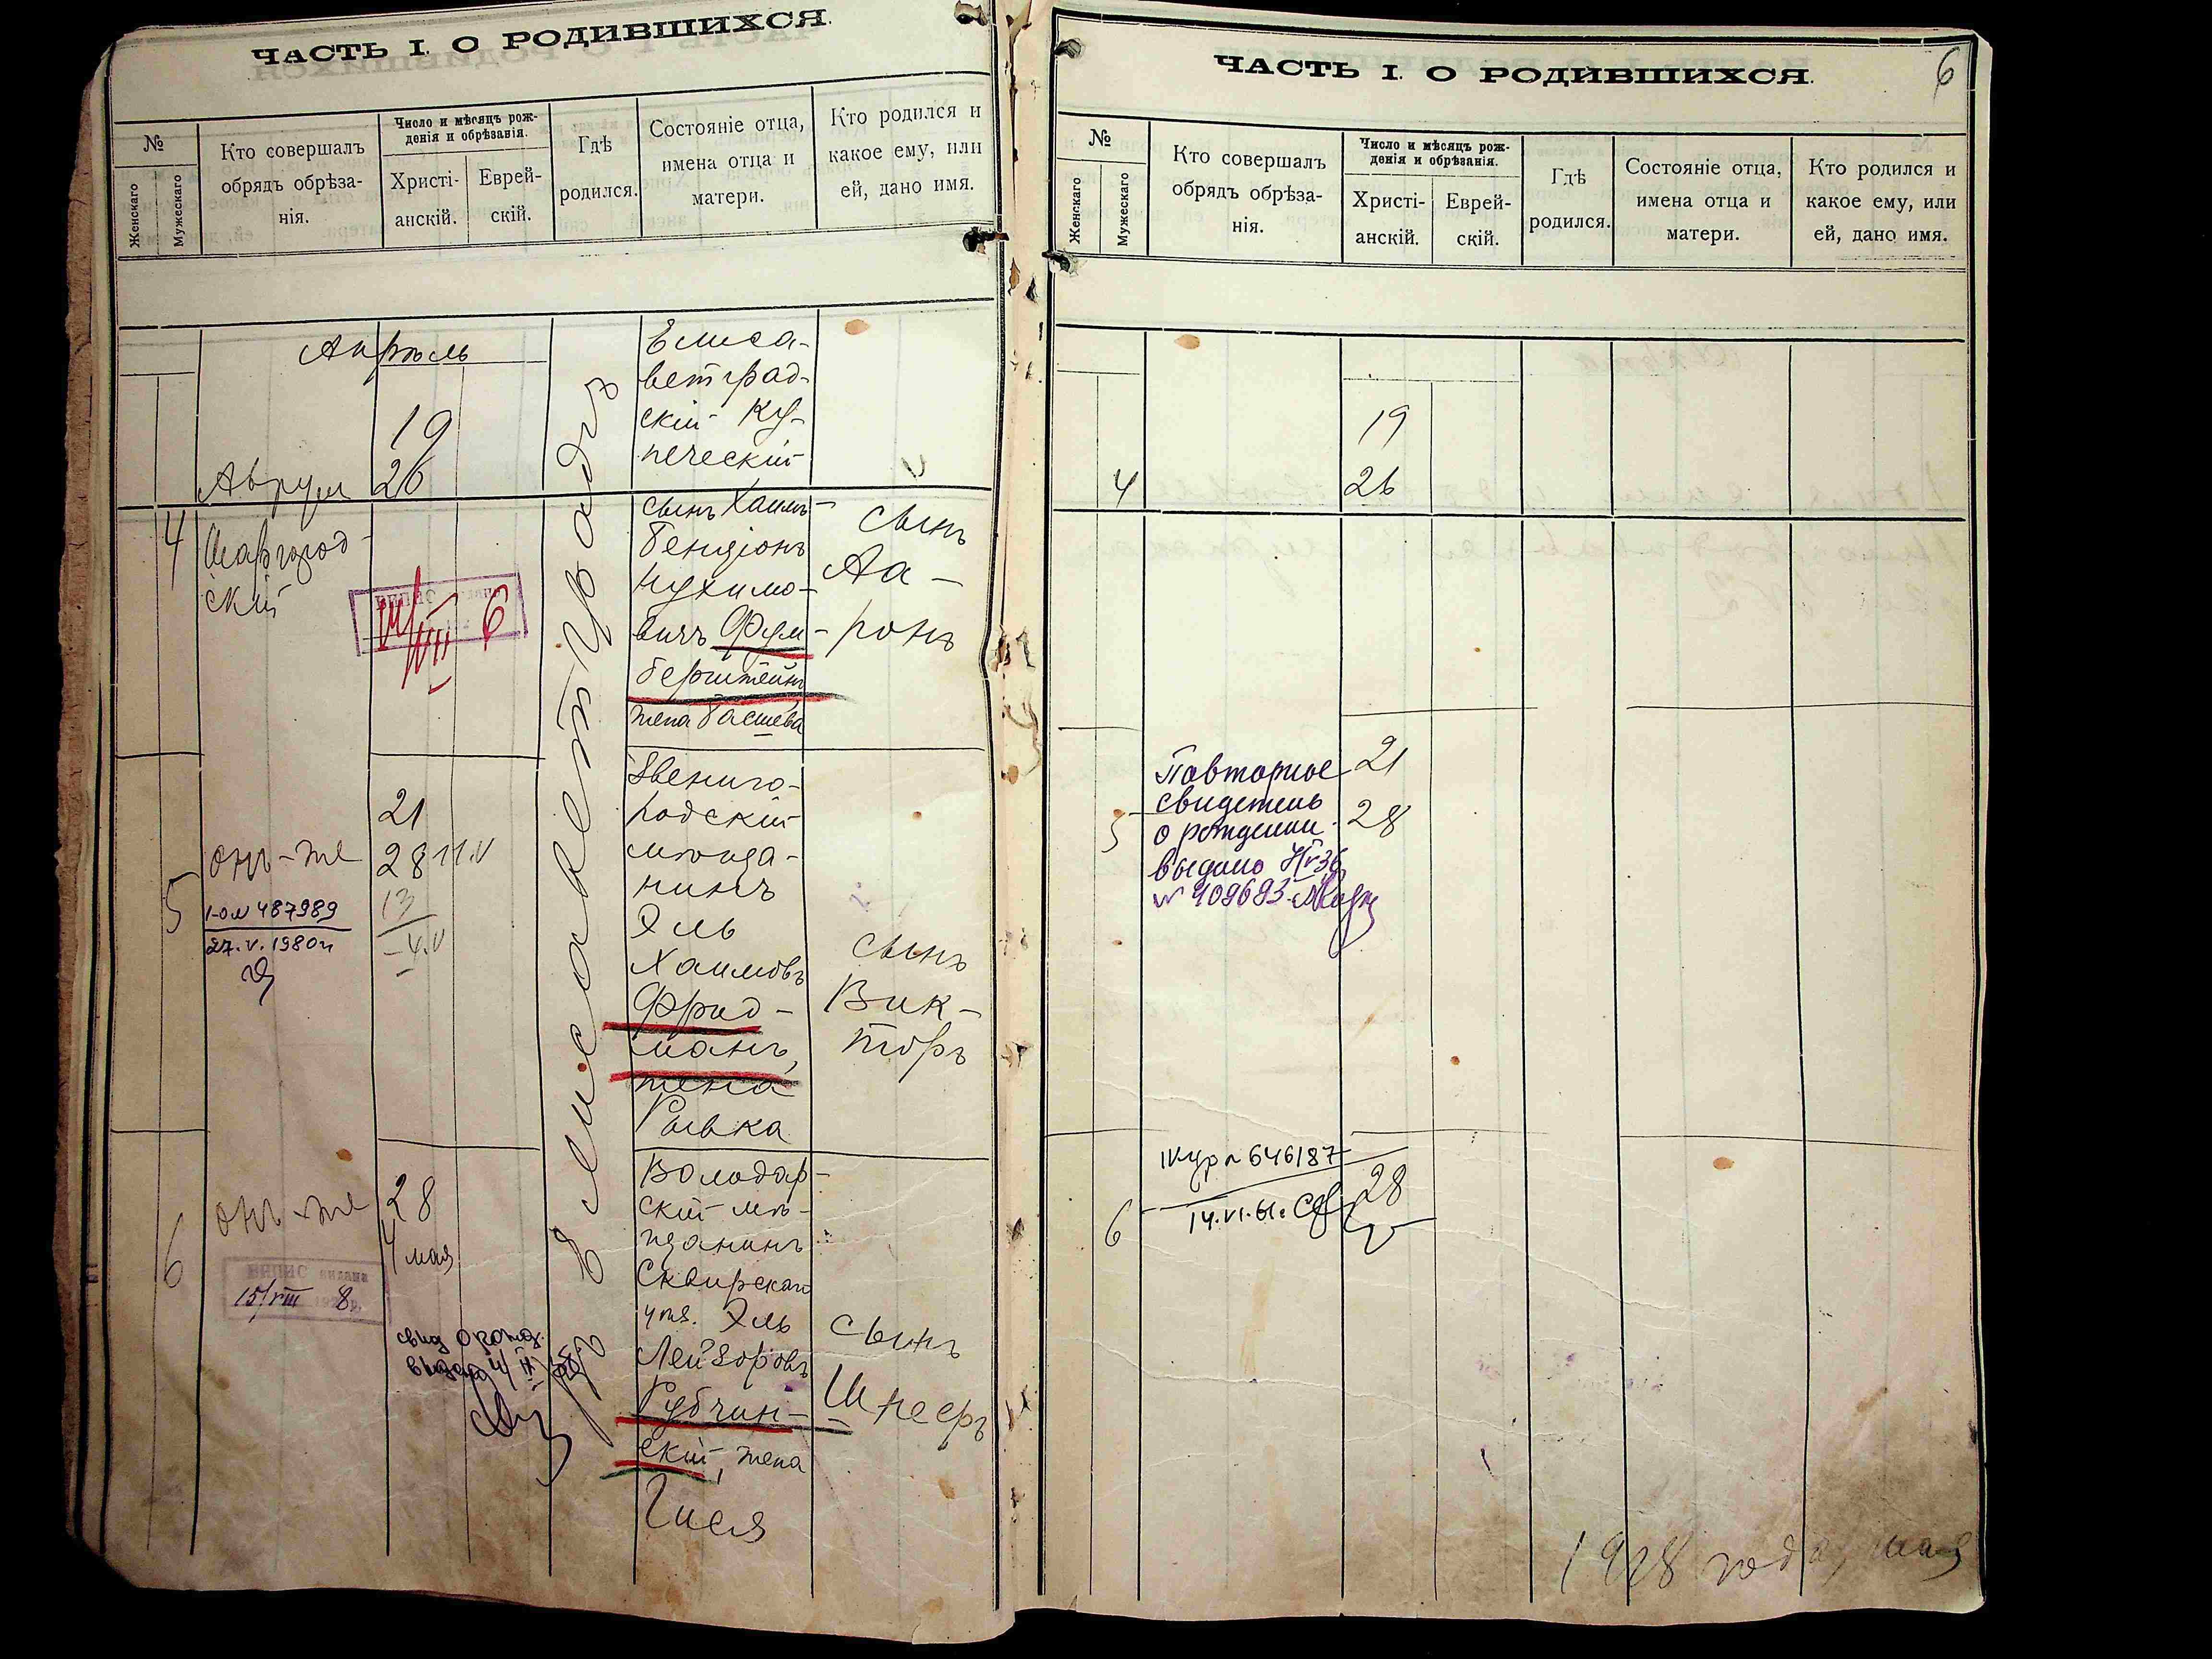 ЧАСТЬ I. О РОДИВШИХСЯ.
№
Женскаго
Мужескаго
Кто совершалъ
обрядъ обрѣза-
нія.
Число и мѣсяцъ рож-
денія и обрѣзанія.
Христі-
анскій.
Еврей-
скій.
Гдѣ
родился.
Состояніе отца,
имена отца и
матери.
Кто родился и
какое ему, или
ей, дано имя.
Апрѣль
Елисаветградъ
4
Аврум
Шаргород-
скій
19
26
6
Елиса-
ветград-
скій ку-
печескій
сынъ Хаимъ-
Бенціонъ
Нухимо-
вичъ Фум-
берштейнъ,
жена Басшева
сынъ
Аа-
ронъ
5
онъ-же
1-ОЛ 487989
27.V.1980
21
28 11.V
13
4.V
Звениго-
родскій
мѣща-
нинъ
Эль
Хаимовъ
Фрид-
манъ,
жена
Рывка
сынъ
Вик-
торъ
6
онъ-же
ВЫПИС видана
15/VIII 8
28
4 мая
свид о рожд.
Володар-
скій мѣ-
щанинъ
Сквирскаго
уѣз. Эль
Лейзоровъ
Рубчин-
скій, жена
Гися
сынъ
Шнееръ
ЧАСТЬ I. О РОДИВШИХСЯ.
6
№
Женскаго
Мужескаго
Кто совершалъ
обрядъ обрѣза-
нія.
Число и мѣсяцъ рож-
денія и обрѣзанія.
Христі-
анскій.
Еврей-
скій.
Гдѣ
родился.
Состояніе отца,
имена отца и
матери.
Кто родился и
какое ему, или
ей, дано имя.
4
19
26
5
Повторное
свидетель
о рождении
выдано
№ 409693
21
28
6
646187
14.VI.61
28